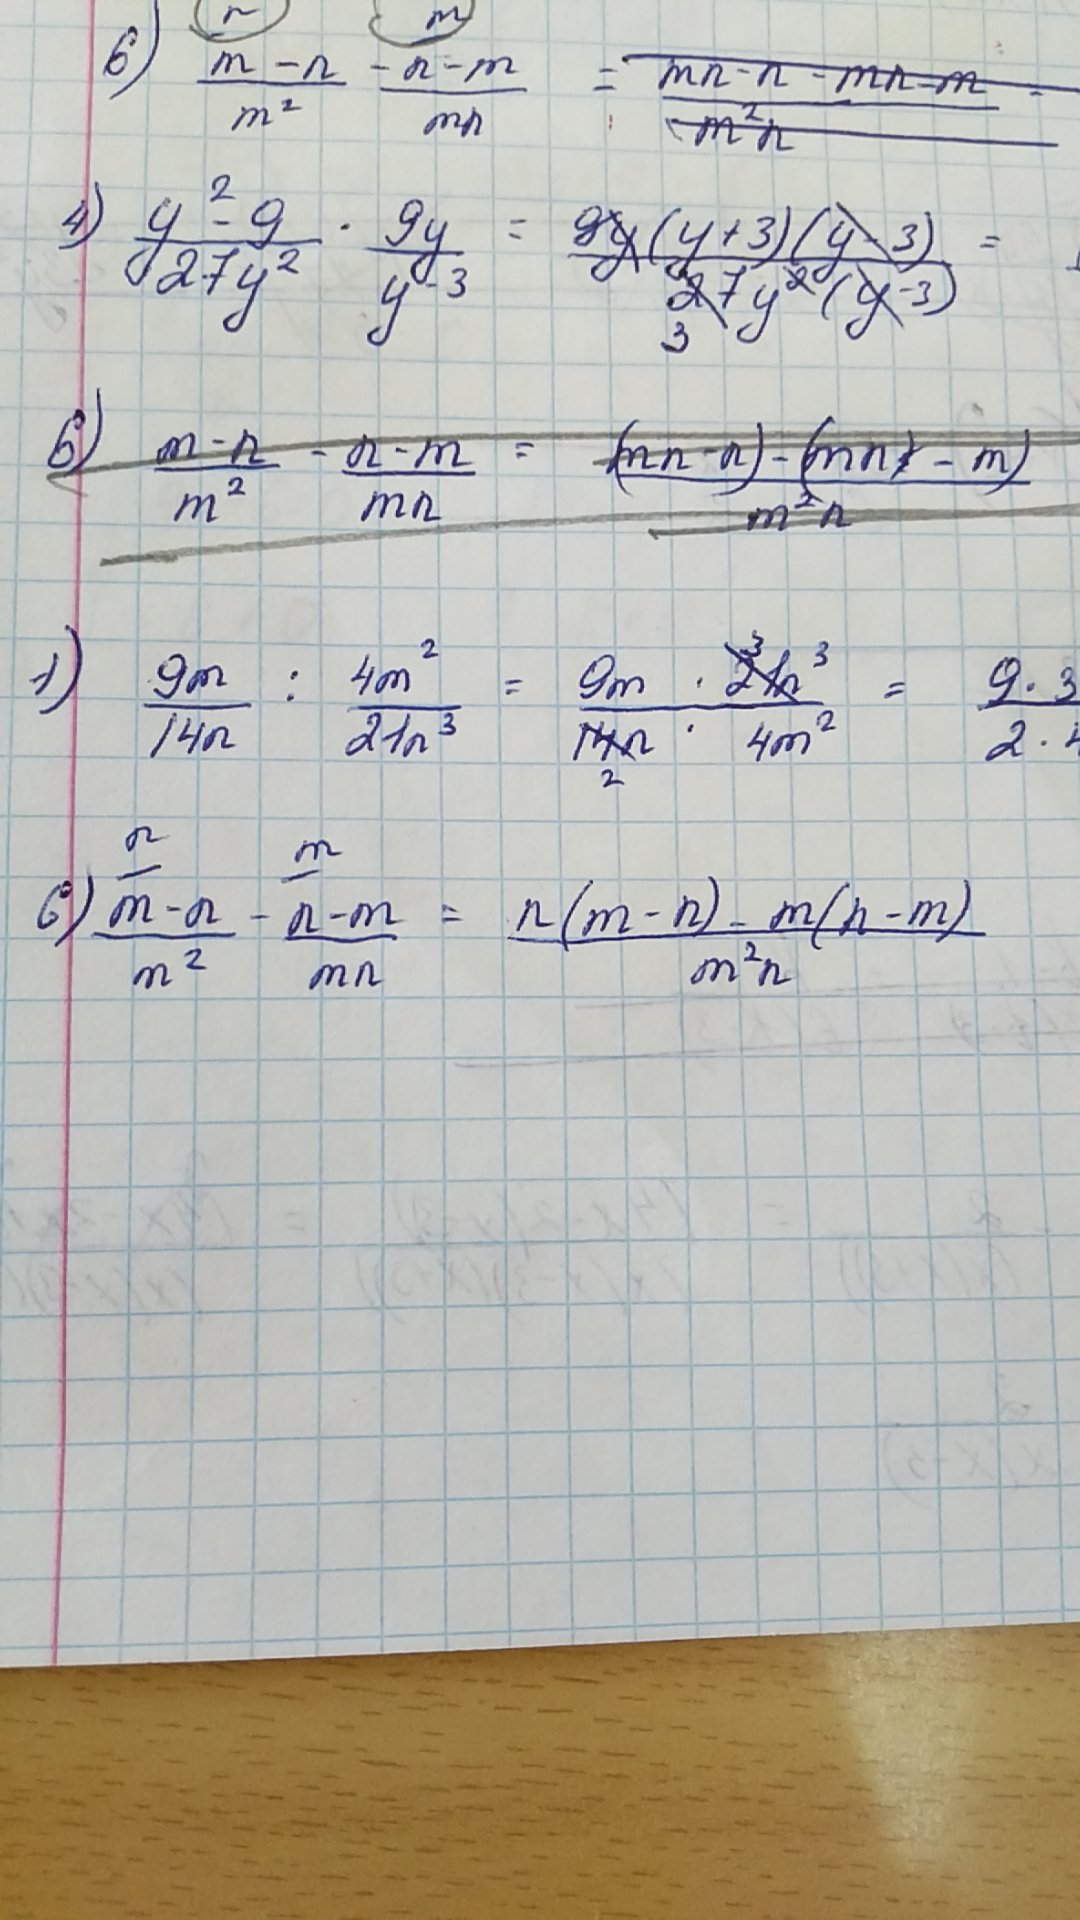 n m
б) (m-n)/m² - (n-m)/mn = (mn-n-mn-m)/m²n =
4) (y²-9)/27y² · 9y/(y-3) = 9y(y+3)(y-3)/27y²(y-3) =
3
б) (m-n)/m² - (n-m)/mn = ((mn-n)-(mn-m))/m²n
1) 9m/14n : 4m²/21n³ = 9m · 21n³/14n · 4m² = 9·3/2·4
3
2
n m
б) (m-n)/m² - (n-m)/mn = (n(m-n)-m(n-m))/m²n